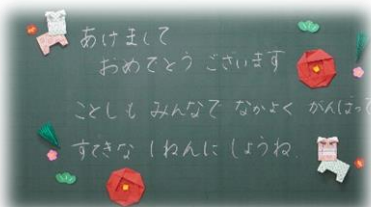 あけまして
おめでとう ございます
ことしも みんなで なかよく がんばって
すてきな 1ねんに しょうね.